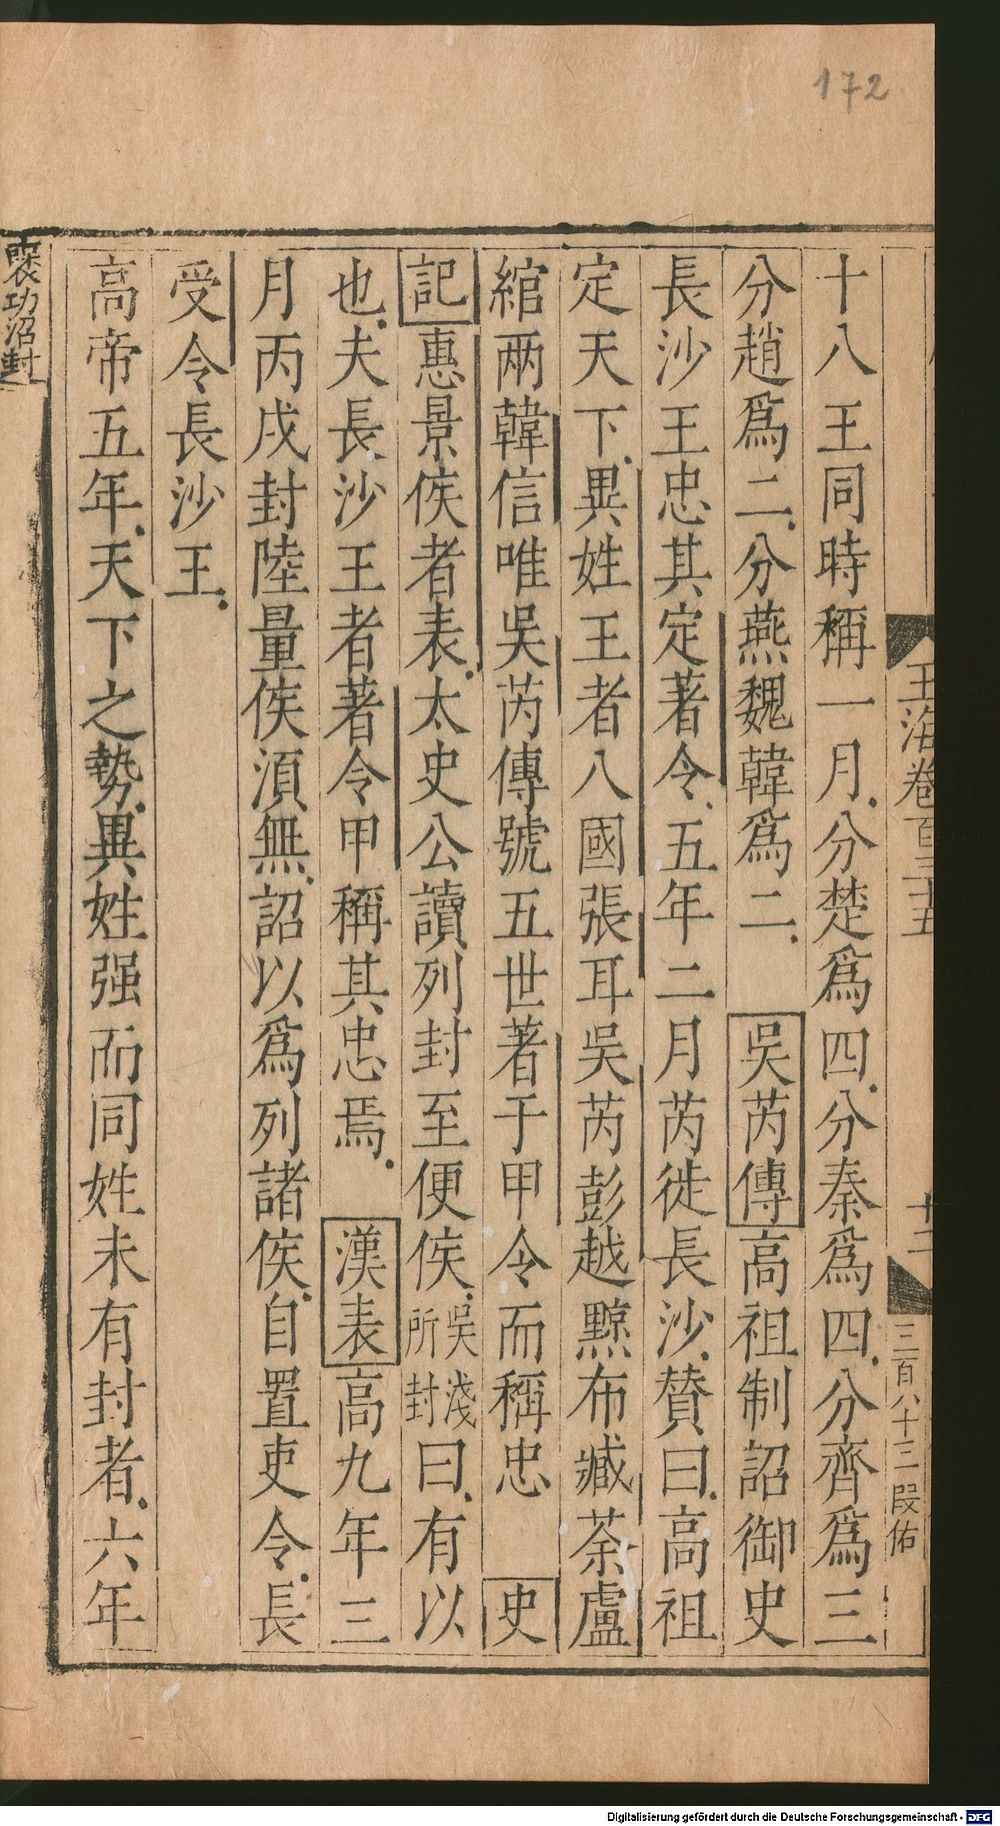 172
玉海卷百三十五
十二
三百八十三 段佑
十八王同時稱一月分楚爲四分秦爲四分齊爲三
分趙爲二分燕魏韓爲二 吳芮傳高祖制詔御史
長沙王忠其定著令五年二月芮徙長沙賛曰高祖
定天下異姓王者八國張耳吳芮彭越黥布臧荼盧
綰兩韓信唯吳芮傳號五世著于甲令而稱忠 史
記惠景侯者表太史公讀列封至便侯吳淺所封曰有以
也夫長沙王者著令甲稱其忠焉 漢表高九年三
月丙戌封陸量侯湏無詔以爲列諸侯自置吏令長
受令長沙王
高帝五年天下之勢異姓强而同姓未有封者六年
襃功沼封
Digitalisierung gefördert durch die Deutsche Forschungsgemeinschaft - DFG